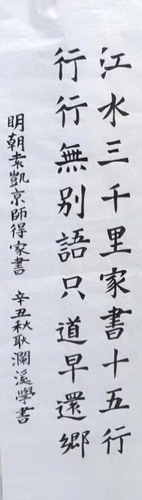 江水三千里家書十五行
行行無別語只道早還鄉
明朝袁凱京師得家書 辛丑秋耿瀾溪學書